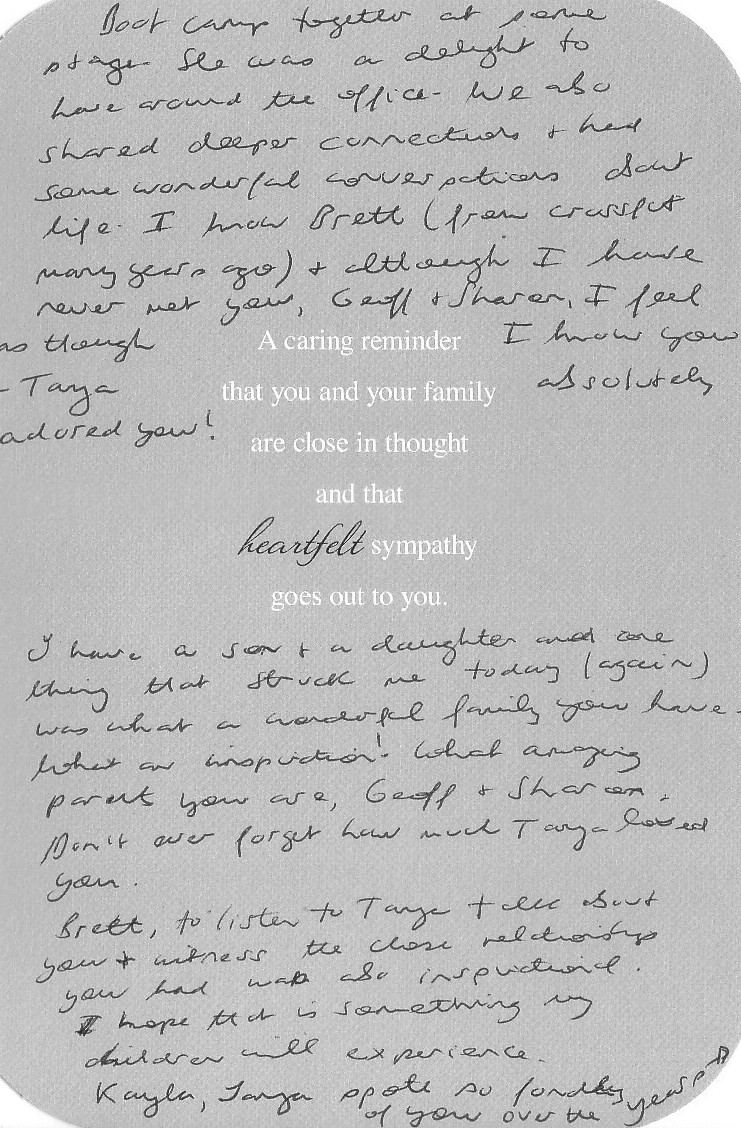 Boot camp together at some
stage. She was a delight to
have around the office. We also
shared deeper connections + had
some wonderful conversations about
life. I know Brett (from crossfit
many years ago) + although I have
never met you, Geoff + Sharon, I feel
as though I know you
- Tanya absolutely
adored you!
A caring reminder
that you and your family
are close in thought
and that
heartfelt sympathy
goes out to you.
I have a son + a daughter and one
thing that struck me today (again)
was what a wonderful family you have.
What an inspiration! What amazing
parents you are, Geoff + Sharon.
Don't ever forget how much Tanya loved
you.
Brett, to listen to Tanya talk about
you + witness the close relationship
you had was also inspirational.
I hope that is something my
children will experience.
Kayla, Tanya spoke so fondly
of you over the years